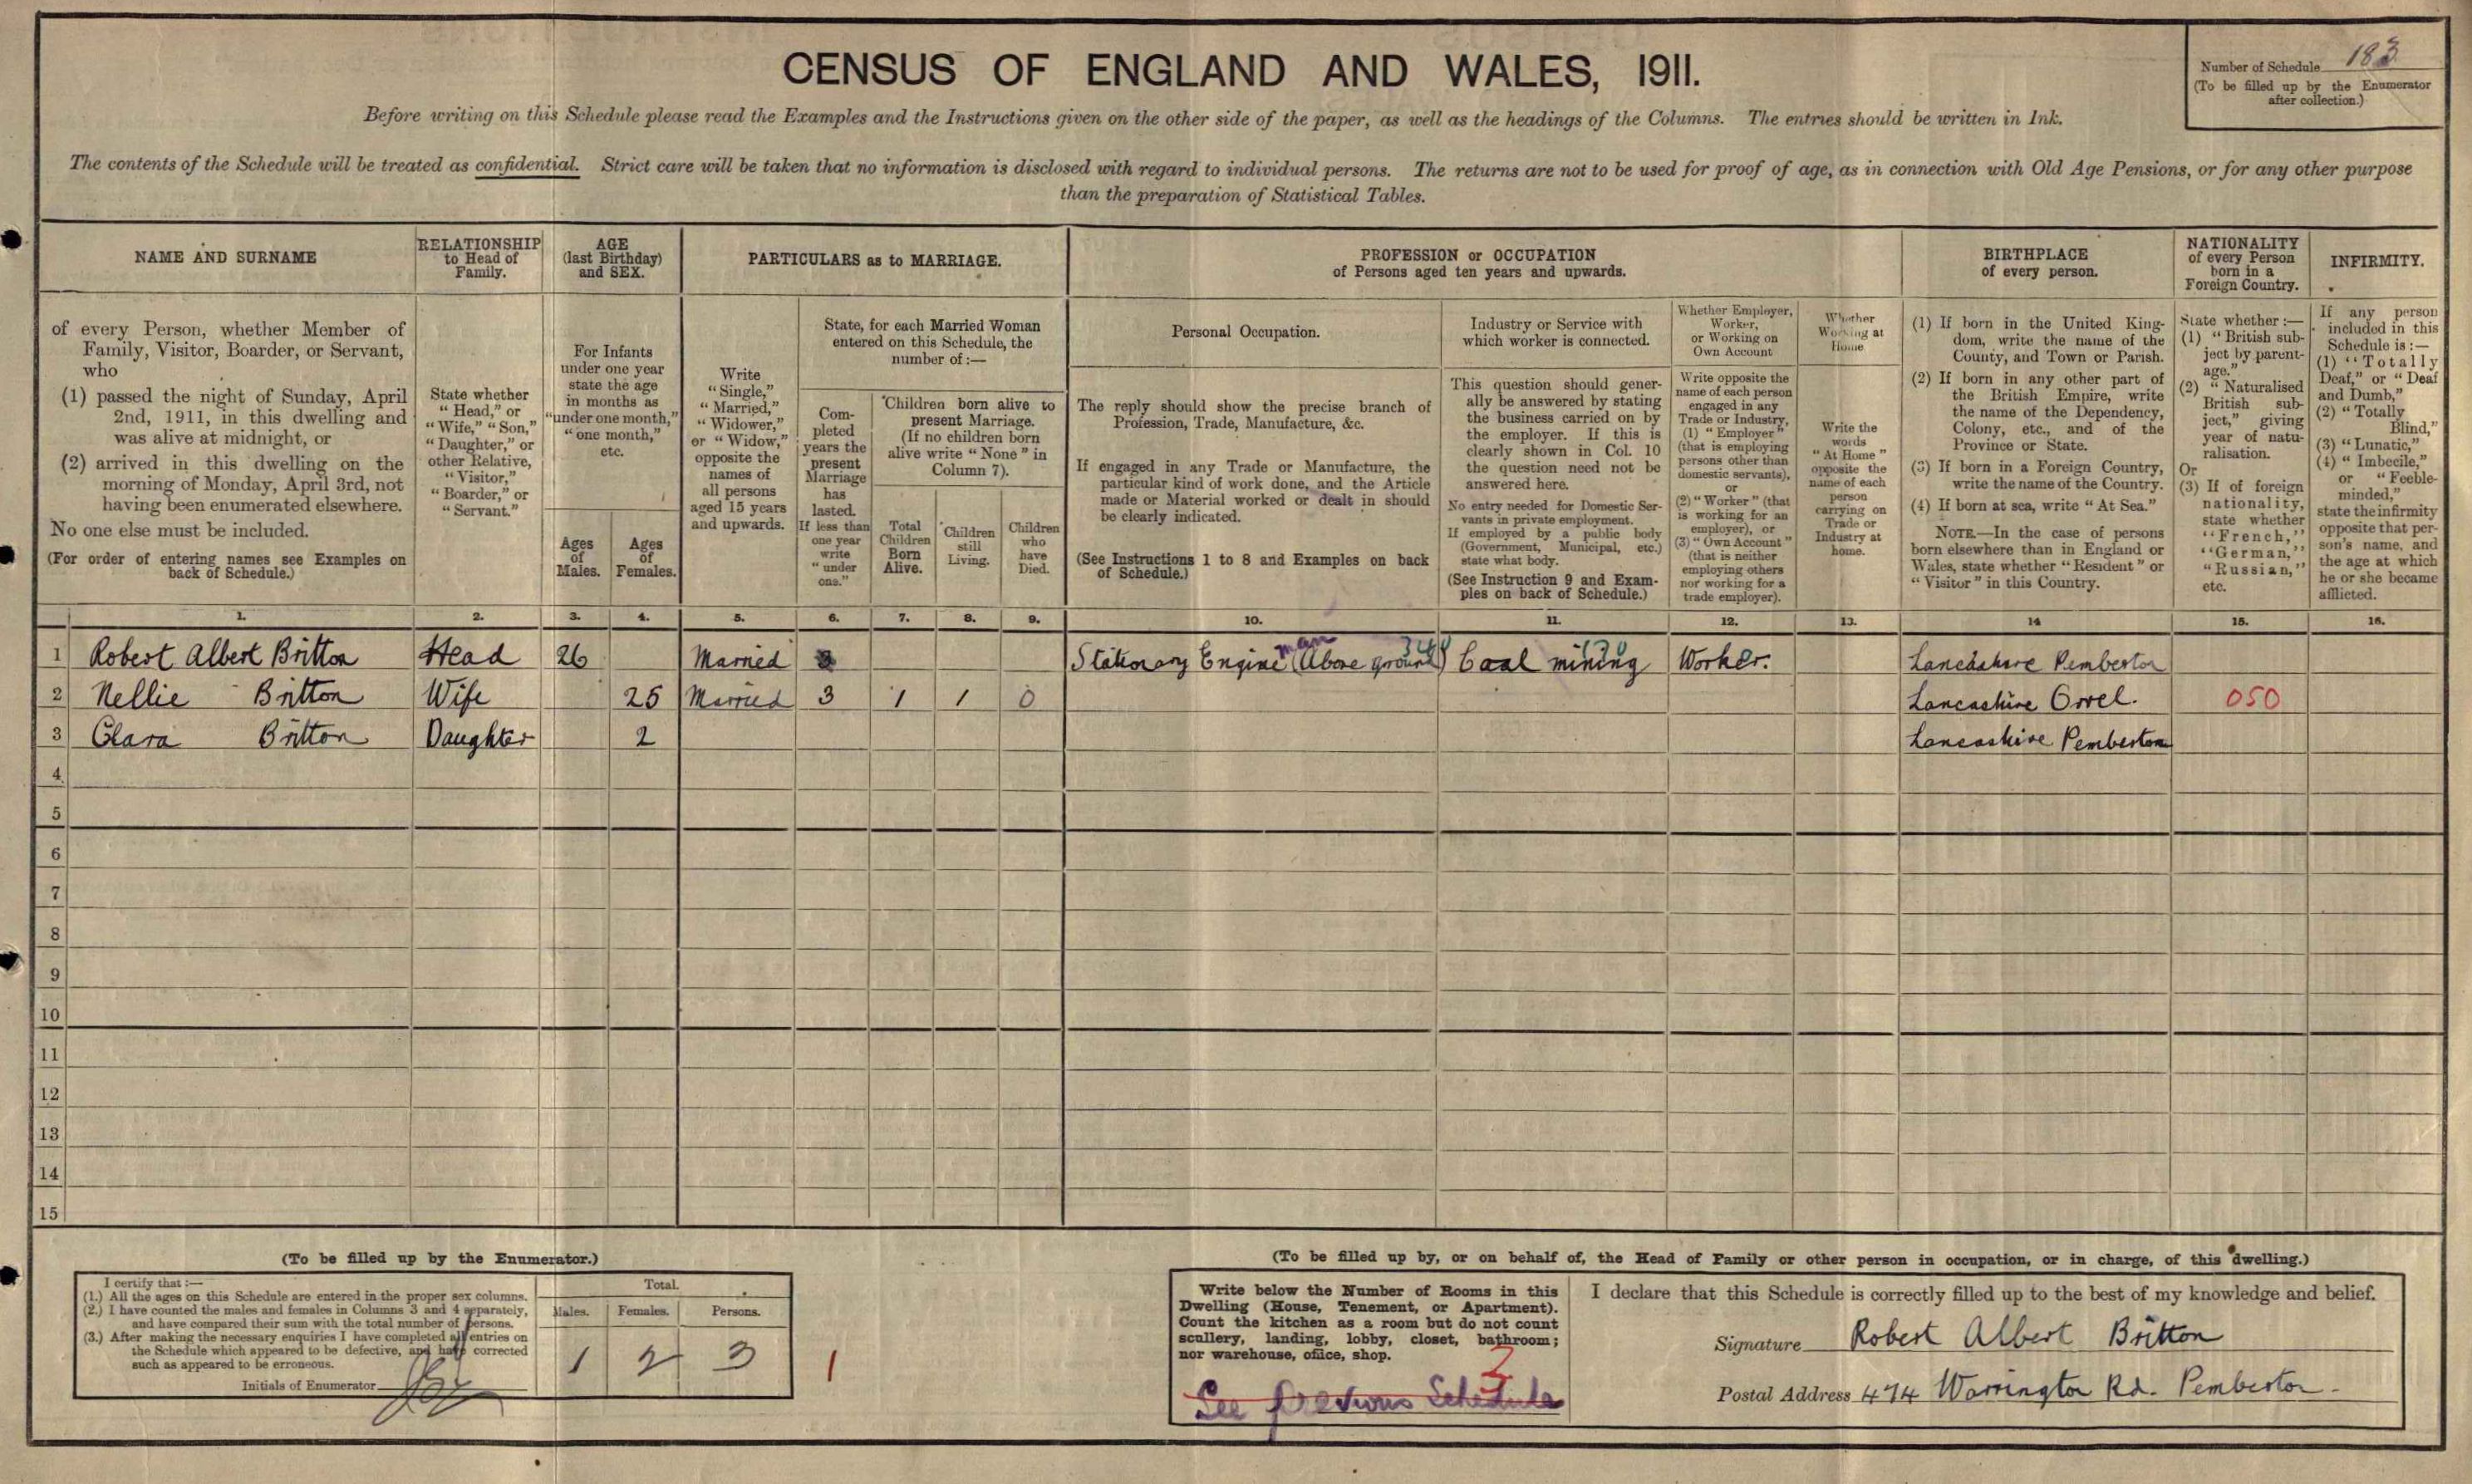 CENSUS OF ENGLAND AND WALES, 1911.
Number of Schedule 183
(To be filled up by the Enumerator
after collection.)
Before writing on this Schedule please read the Examples and the Instructions given on the other side of the paper, as well as the headings of the Columns. The entries should be written in Ink.
The contents of the Schedule will be treated as confidential. Strict care will be taken that no information is disclosed with regard to individual persons. The returns are not to be used for proof of age, as in connection with Old Age Pensions, or for any other purpose
than the preparation of Statistical Tables.
NAME AND SURNAME
of every Person, whether Member of
Family, Visitor, Boarder, or Servant,
who
(1) passed the night of Sunday, April
2nd, 1911, in this dwelling and
was alive at midnight, or
(2) arrived in this dwelling on the
morning of Monday, April 3rd, not
having been enumerated elsewhere.
No one else must be included.
(For order of entering names see Examples on
back of Schedule.)
RELATIONSHIP
to Head of
Family.
State whether
"Head," or
"Wife," "Son,"
"Daughter," or
other Relative,
"Visitor,"
"Boarder," or
"Servant."
AGE
(last Birthday)
and SEX.
For Infants
under one year
state the age
in months as
"under one month,"
"one month,"
etc.
Ages
of
Males.
Ages
of
Females.
PARTICULARS as to MARRIAGE.
Write
"Single,"
"Married,"
"Widower,"
or "Widow,"
opposite the
names of
all persons
aged 15 years
and upwards.
State, for each Married Woman
entered on this Schedule, the
number of:—
Com-
pleted
years the
present
Marriage
has
lasted.
If less than
one year
write
"under
one."
Children born alive to
present Marriage.
(If no children born
alive write "None" in
Column 7).
Total
Children
Born
Alive.
Children
still
Living.
Children
who
have
Died.
PROFESSION or OCCUPATION
of Persons aged ten years and upwards.
Personal Occupation.
The reply should show the precise branch of
Profession, Trade, Manufacture, &c.
If engaged in any Trade or Manufacture, the
particular kind of work done, and the Article
made or Material worked or dealt in should
be clearly indicated.
(See Instructions 1 to 8 and Examples on back
of Schedule.)
Industry or Service with
which worker is connected.
This question should gener-
ally be answered by stating
the business carried on by
the employer. If this is
clearly shown in Col. 10
the question need not be
answered here.
No entry needed for Domestic Ser-
vants in private employment.
If employed by a public body
(Government, Municipal, etc.)
state what body.
(See Instruction 9 and Exam-
ples on back of Schedule.)
Whether Employer,
Worker,
or Working on
Own Account
Write opposite the
name of each person
engaged in any
Trade or Industry,
(1) "Employer"
(that is employing
persons other than
domestic servants),
or
(2) "Worker" (that
is working for an
employer), or
(3) "Own Account"
(that is neither
employing others
nor working for a
trade employer).
Whether
Working at
Home
Write the
words
"At Home"
opposite the
name of each
person
carrying on
Trade or
Industry at
home.
BIRTHPLACE
of every person.
(1) If born in the United King-
dom, write the name of the
County, and Town or Parish.
(2) If born in any other part of
the British Empire, write
the name of the Dependency,
Colony, etc., and of the
Province or State.
(3) If born in a Foreign Country,
write the name of the Country.
(4) If born at sea, write "At Sea."
NOTE.—In the case of persons
born elsewhere than in England or
Wales, state whether "Resident" or
"Visitor" in this Country.
NATIONALITY
of every Person
born in a
Foreign Country.
State whether :—
(1) "British sub-
ject by parent-
age."
(2) "Naturalised
British sub-
ject," giving
year of natu-
ralisation.
Or
(3) If of foreign
nationality,
state whether
"French,"
"German,"
"Russian,"
etc.
INFIRMITY.
If any person
included in this
Schedule is:—
(1) "Totally
Deaf," or "Deaf
and Dumb,"
(2) "Totally
Blind,"
(3) "Lunatic,"
(4) "Imbecile,"
or "Feeble-
minded,"
state the infirmity
opposite that per-
son's name, and
the age at which
he or she became
afflicted.
1. 2. 3. 4. 5. 6. 7. 8. 9. 10. 11. 12. 13. 14 15. 16.
1 Robert Albert Britton Head 26 Married Stationary Engine man (Above ground) Coal mining Worker. Lancashire Pemberton
2 Nellie Britton Wife 25 Married 3 1 1 0 Lancashire Orrel. 050
3 Clara Britton Daughter 2 Lancashire Pemberton
4
5
6
7
8
9
10
11
12
13
14
15
(To be filled up by the Enumerator.)
I certify that :—
(1.) All the ages on this Schedule are entered in the proper sex columns.
(2.) I have counted the males and females in Columns 3 and 4 separately,
and have compared their sum with the total number of persons.
(3.) After making the necessary enquiries I have completed all entries on
the Schedule which appeared to be defective, and have corrected
such as appeared to be erroneous.
Initials of Enumerator
Total.
Males. Females. Persons.
1 2 3
1
(To be filled up by, or on behalf of, the Head of Family or other person in occupation, or in charge, of this dwelling.)
Write below the Number of Rooms in this
Dwelling (House, Tenement, or Apartment).
Count the kitchen as a room but do not count
scullery, landing, lobby, closet, bathroom;
nor warehouse, office, shop.
See previous Schedule
I declare that this Schedule is correctly filled up to the best of my knowledge and belief.
Signature Robert Albert Britton
Postal Address 474 Warrington Rd. Pemberton